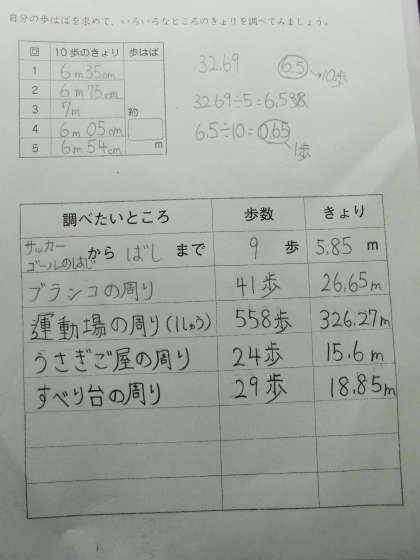 自分の歩はばを求めて、いろいろなところのきょりを調べてみましょう。
回 10歩のきょり 歩はば
1 6m35cm
2 6m75cm
3 7m
4 6m05cm
5 6m54cm
約
m
32.69 6.5 →10歩
32.69÷5=6.538
6.5÷10=0.65
1歩
調べたいところ 歩数 きょり
サッカーゴールのはじ から ばし まで 9 歩 5.85 m
ブランコの周り 41歩 26.65m
運動場の周り(1しゅう) 558歩 326.27m
うさぎご屋の周り 24歩 15.6m
すべり台の周り 29歩 18.85m